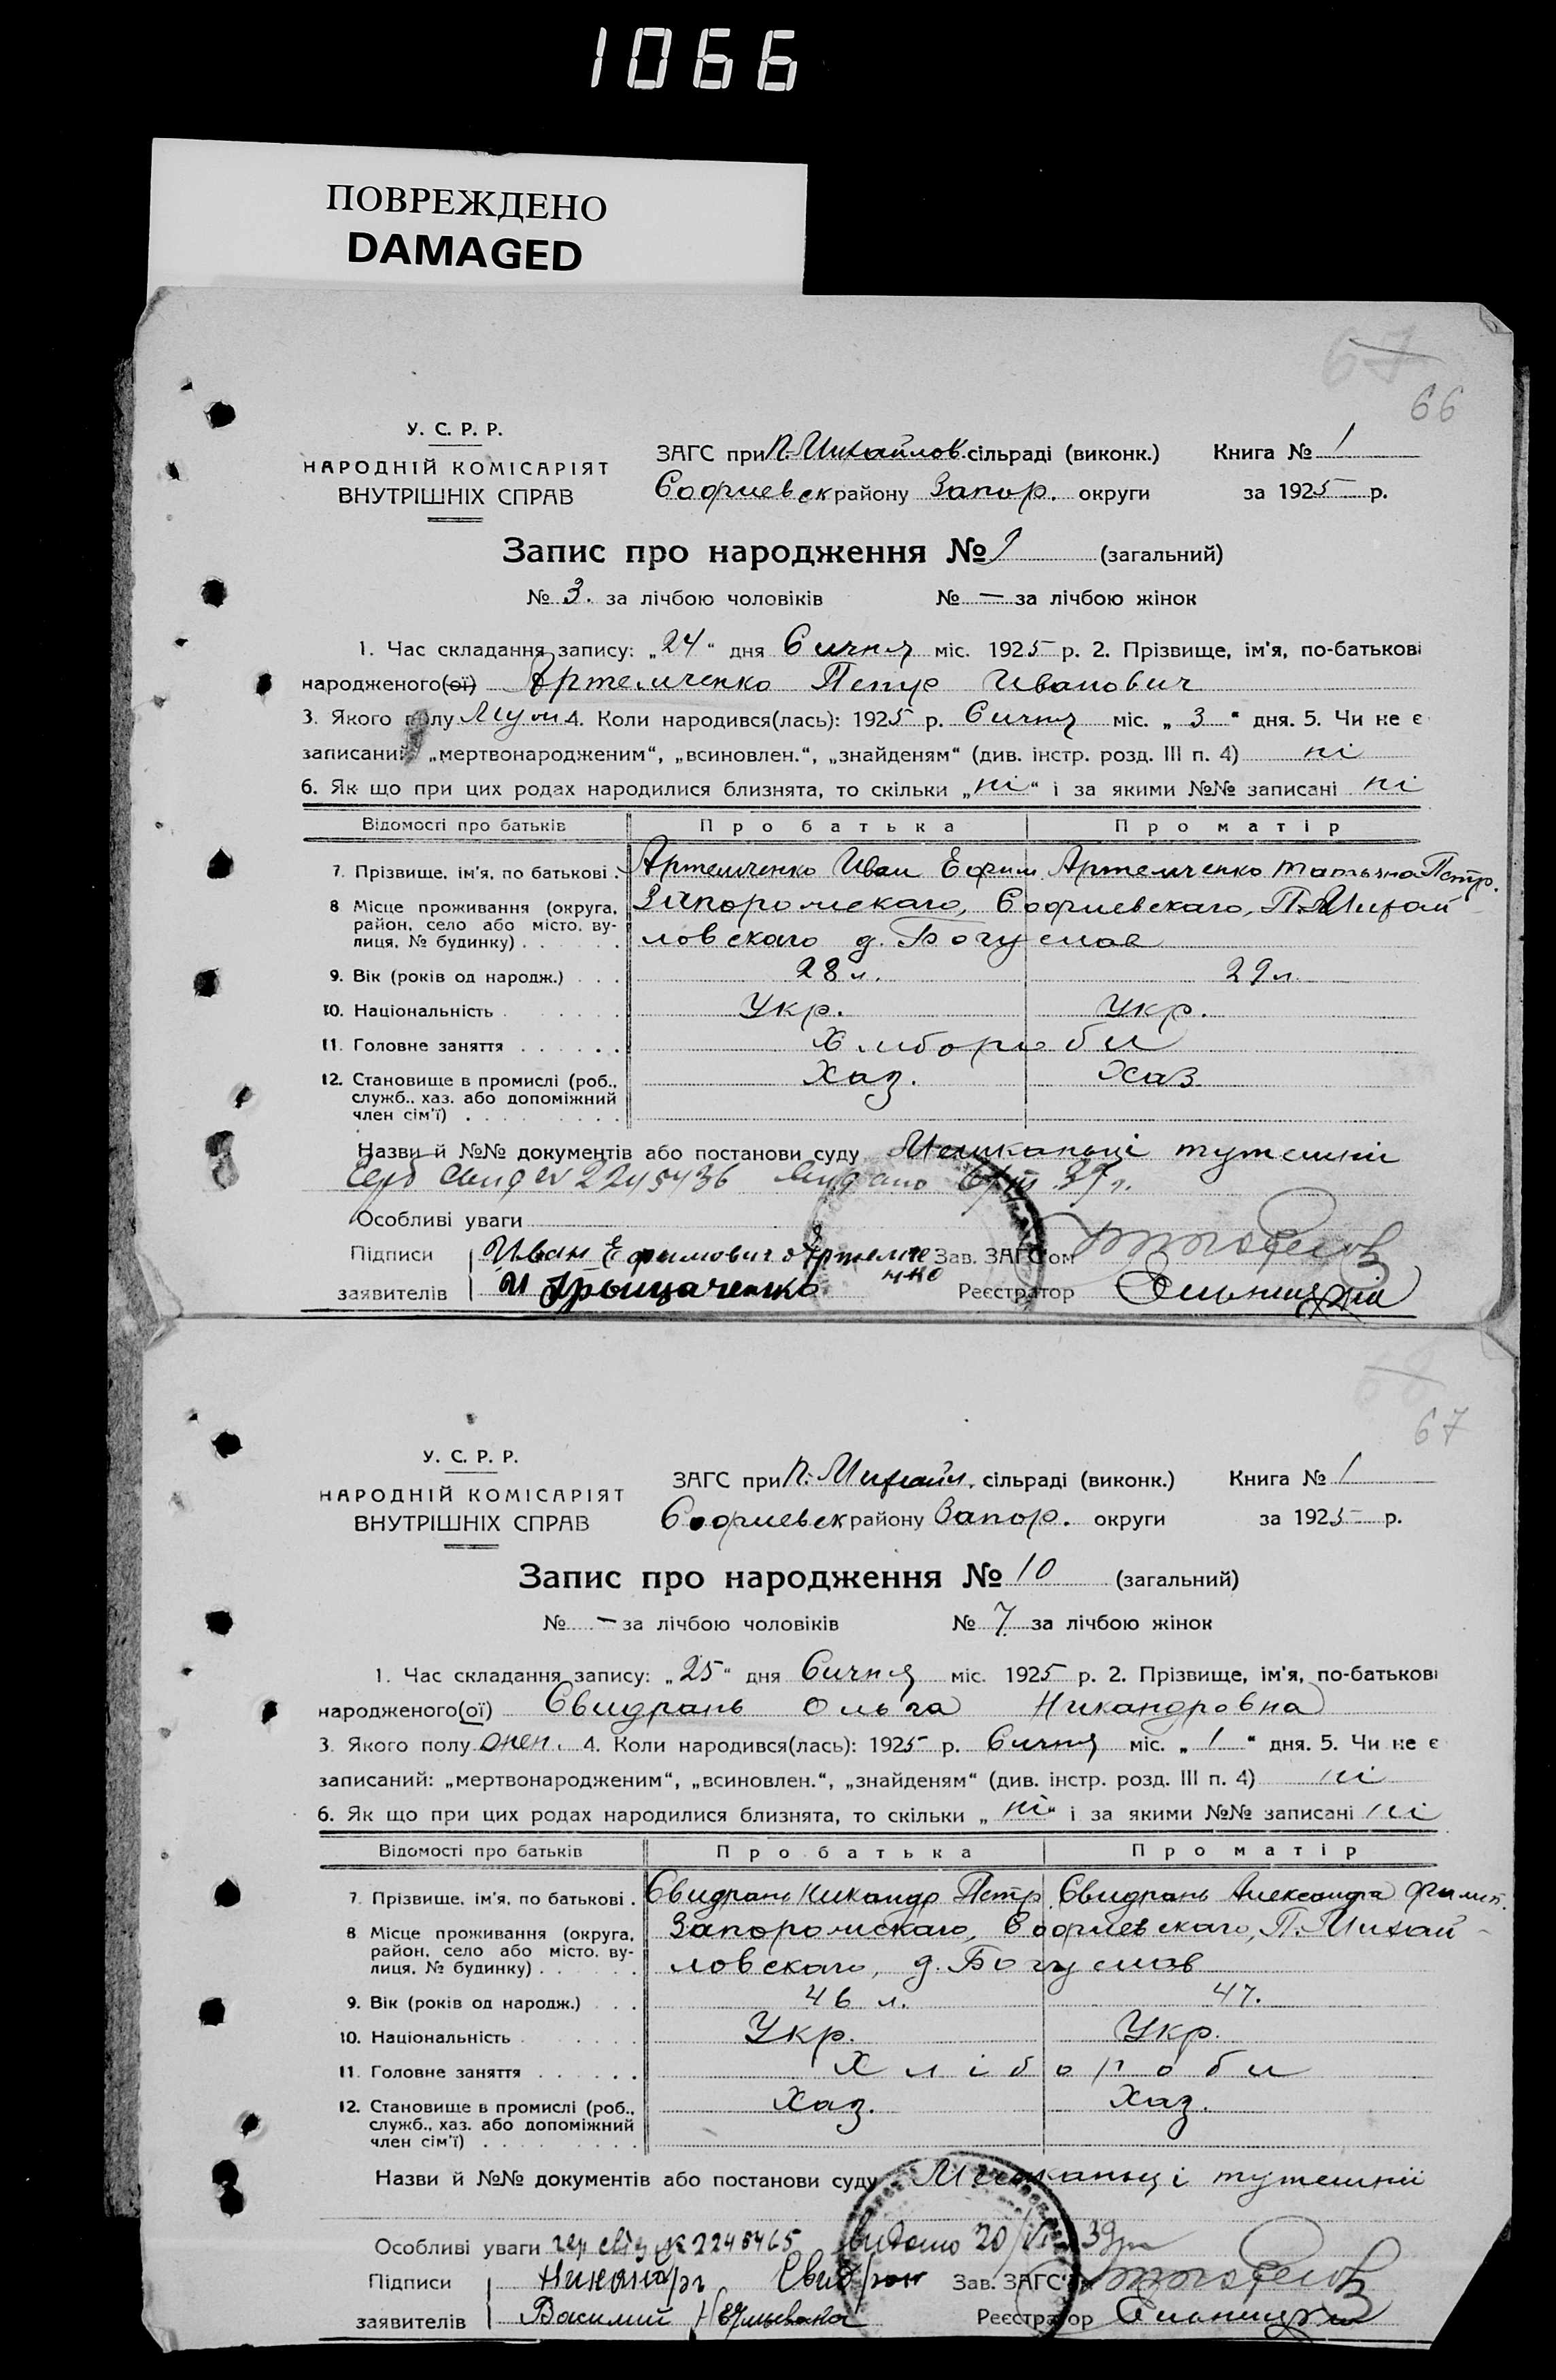 1066
ПОВРЕЖДЕНО
DAMAGED
67
66
У. С. Р. Р.
НАРОДНІЙ КОМІСАРІЯТ
ВНУТРІШНІХ СПРАВ
ЗАГС при П. Михайлов. сільраді (виконк.) Книга № 1
Софиевск району Запор. округи за 1925 р.
Запис про народження № 9 (загальний)
№ 3. за лічбою чоловіків № — за лічбою жінок
1. Час складання запису: „24“ дня Сичня міс. 1925 р. 2. Прізвище, ім'я, по-батькові
народженого(ої) Артемченко Петр Иванович
3. Якого полу Муж 4. Коли народився(лась): 1925 р. Сичня міс. „ 3 “ дня. 5. Чи не є
записаний: „мертвонародженим“, „всиновлен.“, „знайденям“ (див. інстр. розд. III п. 4) ні
6. Як що при цих родах народилися близнята, то скільки „ні“ і за якими №№ записані ні
Відомості про батьків Про батька Про матір
7. Прізвище, ім'я, по батькові . Артемченко Иван Ефим. Артемченко Татьяна Петр.
8 Місце проживання (округа, район, село або місто, вулиця, № будинку) Запорожскаго, Софиевскаго, П. Михай
ловскаго д. Богуслав
9. Вік (років од народж.) 28 л. 29 л.
10. Національність Укр. Укр.
11. Головне заняття Хлибороби
12. Становище в промислі (роб., Хаз. Хаз
служб., хаз. або допоміжний
член сім'ї)
Назви й №№ документів або постанови суду Мешканьці тутешнії
2245436
Особливі уваги
Підписи Иван Ефимович Артемче Зав. ЗАГС'ом
нко
заявителів И Грыцаченко Реєстратор
67
У. С. Р. Р.
НАРОДНІЙ КОМІСАРІЯТ
ВНУТРІШНІХ СПРАВ
ЗАГС при П. Михайл. сільраді (виконк.) Книга № 1
Софиевск району Запор. округи за 1925 р.
Запис про народження № 10 (загальний)
№ — за лічбою чоловіків № 7 за лічбою жінок
1. Час складання запису: „25“ дня Сичня міс. 1925 р. 2. Прізвище, ім'я, по-батькові
народженого(ої) Свидрань Ольга Никандровна
3. Якого полу жен. 4. Коли народився(лась): 1925 р. Сичня міс. „ 1 “ дня. 5. Чи не є
записаний: „мертвонародженим“, „всиновлен.“, „знайденям“ (див. інстр. розд. III п. 4) ні
6. Як що при цих родах народилися близнята, то скільки „ ні“ і за якими №№ записані ні
Відомості про батьків Про батька Про матір
7. Прізвище, ім'я, по батькові . Свидрань Никандр Петр. Свидрань Александра Филип.
8 Місце проживання (округа, район, село або місто, вулиця, № будинку) Запорожскаго, Софиевскаго, П. Михай-
ловскаго, д. Богуслав
9. Вік (років од народж.) 46 л. 47.
10. Національність Укр. Укр.
11. Головне заняття Хлібороби
12. Становище в промислі (роб., Хаз. Хаз.
служб., хаз. або допоміжний
член сім'ї)
Назви й №№ документів або постанови суду Мешканьці тутешнії
Особливі уваги № 2245465 видано 20
Підписи Свидран Зав. ЗАГС'ом
заявителів Василий Реєстратор